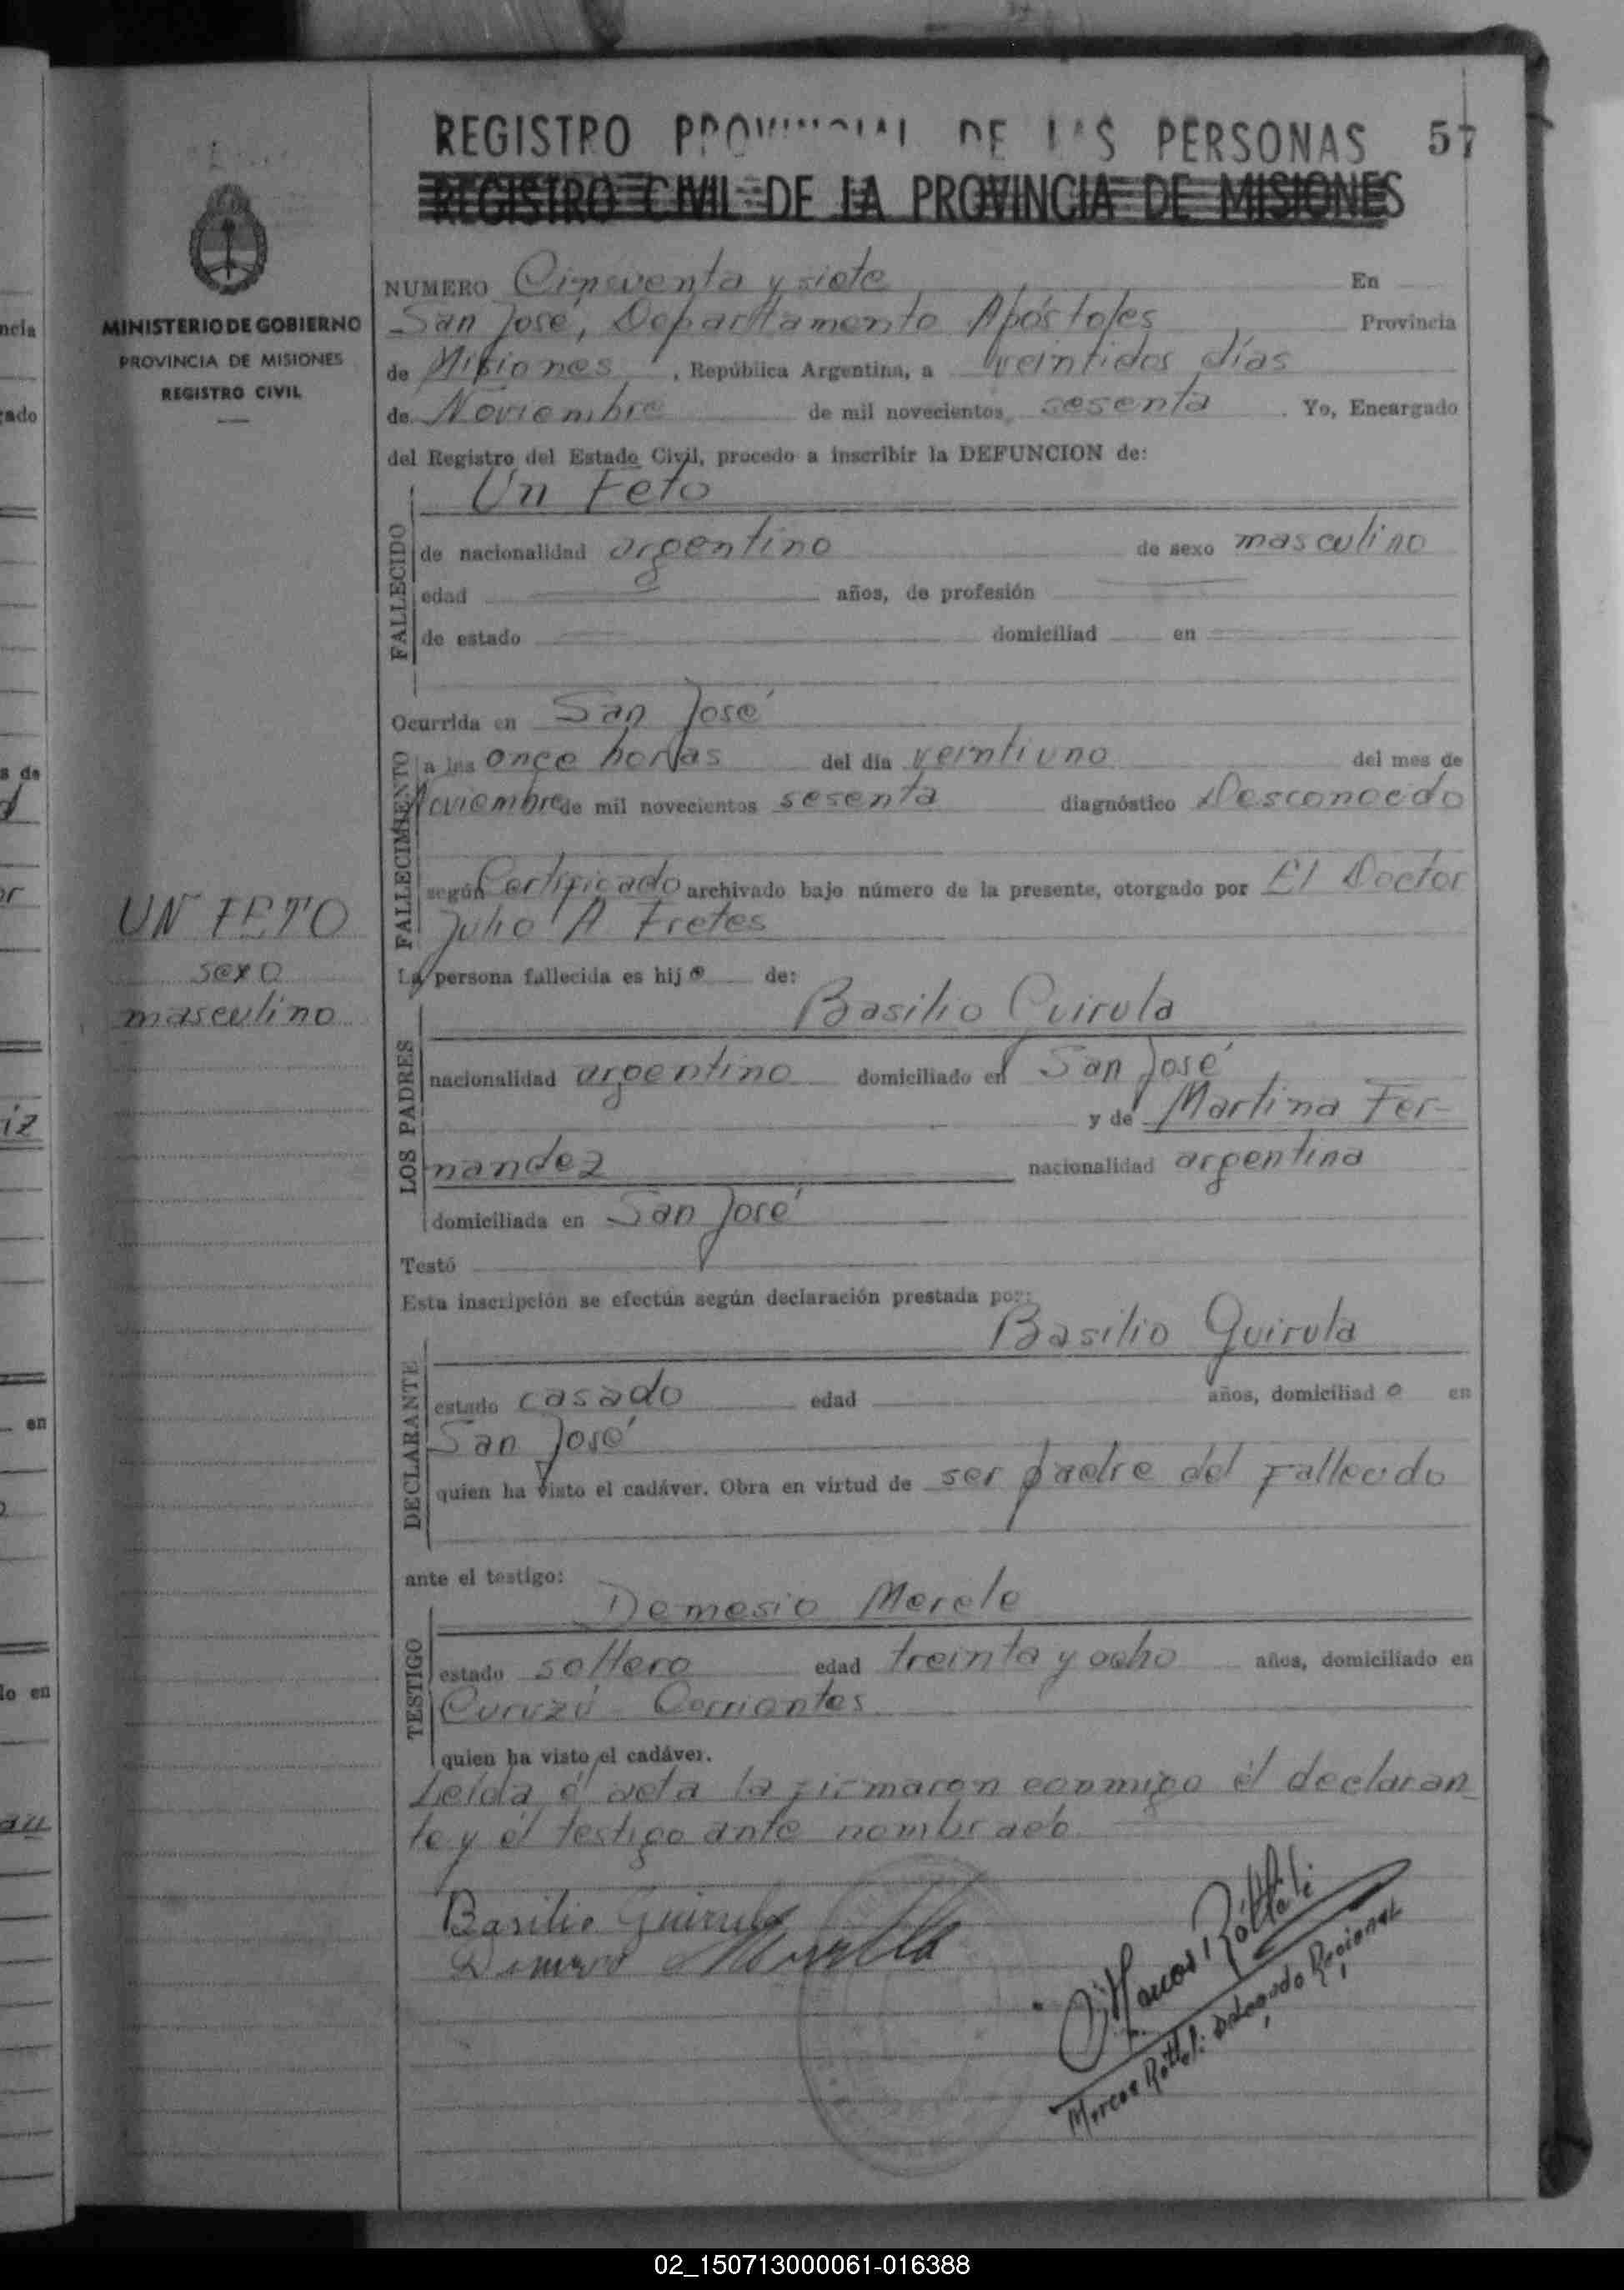 REGISTRO PROVINCIAL DE LAS PERSONAS 57
REGISTRO CIVIL DE LA PROVINCIA DE MISIONES
MINISTERIO DE GOBIERNO
PROVINCIA DE MISIONES
REGISTRO CIVIL
NUMERO Cincuenta y siete En
San José, Departamento Apóstoles Provincia
de Misiones, República Argentina, a veintidos días
de Noviembre de mil novecientos sesenta. Yo, Encargado
del Registro del Estado Civil, procedo a inscribir la DEFUNCION de:
Un Feto
FALLECIDO
de nacionalidad argentino de sexo masculino
edad años, de profesión
de estado domiciliad en
Ocurrida en San José
FALLECIMIENTO
a las once horas del día veintiuno del mes de
Noviembre de mil novecientos sesenta diagnóstico Desconocido
según Certificado archivado bajo número de la presente, otorgado por El Doctor
Julio A Fretes
UN FETO
sexo
masculino
La persona fallecida es hijo de:
Basilio Quirula
LOS PADRES
nacionalidad argentino domiciliado en San José
y de Martina Fer-
nandez nacionalidad argentina
domiciliada en San José
Testó
Esta inscripción se efectúa según declaración prestada por:
Basilio Quirula
DECLARANTE
estado casado edad años, domiciliado en
San José
quien ha visto el cadáver. Obra en virtud de ser padre del fallecido
ante el testigo:
Demesio Merele
TESTIGO
estado soltero edad treinta y ocho años, domiciliado en
Curuzú - Corrientes
quien ha visto el cadáver.
Leida el acta la firmaron conmigo él declaran_
te y él testigo ante nombrado
Basilio Quirula
Marcos Róttoli
Marcos Rottoli: Delegado Regional
02_150713000061-016388